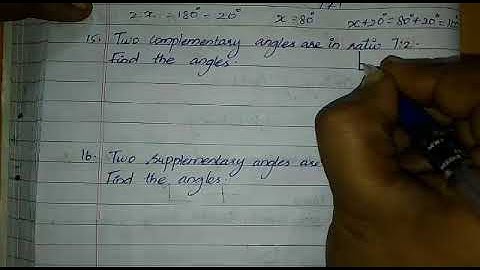 2x = 180° - 20° x = 80° x+20° = 80°+20° = 100°
15. Two complementary angles are in ratio 7:2.
Find the angles.
16. Two supplementary angles are
Find the angles.